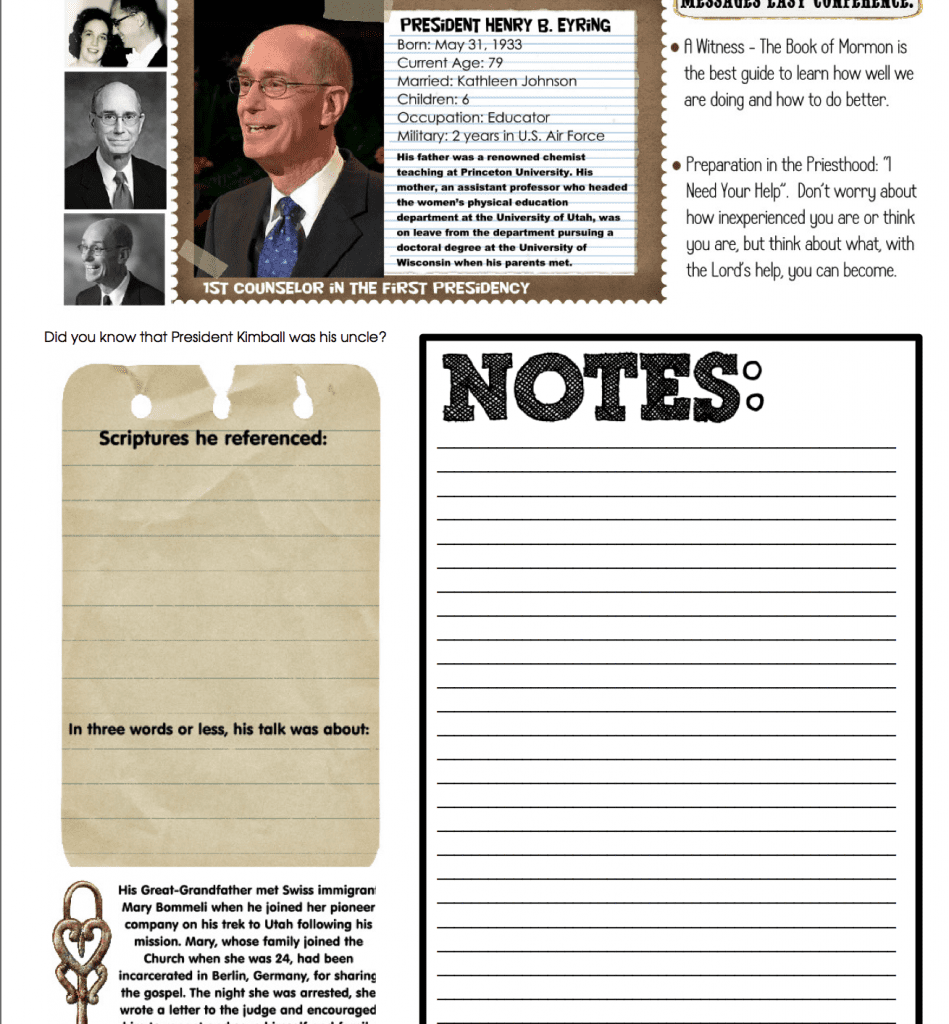 MESSAGES LAST CONFERENCE:
PRESIDENT HENRY B. EYRING
Born: May 31, 1933
Current Age: 79
Married: Kathleen Johnson
Children: 6
Occupation: Educator
Military: 2 years in U.S. Air Force
His father was a renowned chemist
teaching at Princeton University. His
mother, an assistant professor who headed
the women's physical education
department at the University of Utah, was
on leave from the department pursuing a
doctoral degree at the University of
Wisconsin when his parents met.
1ST COUNSELOR IN THE FIRST PRESIDENCY
• A Witness - The Book of Mormon is
the best guide to learn how well we
are doing and how to do better.
• Preparation in the Priesthood: "I
Need Your Help". Don't worry about
how inexperienced you are or think
you are, but think about what, with
the Lord's help, you can become.
Did you know that President Kimball was his uncle?
Scriptures he referenced:
In three words or less, his talk was about:
NOTES:
His Great-Grandfather met Swiss immigran
Mary Bommeli when he joined her pioneer
company on his trek to Utah following his
mission. Mary, whose family joined the
Church when she was 24, had been
incarcerated in Berlin, Germany, for sharing
the gospel. The night she was arrested, she
wrote a letter to the judge and encouraged